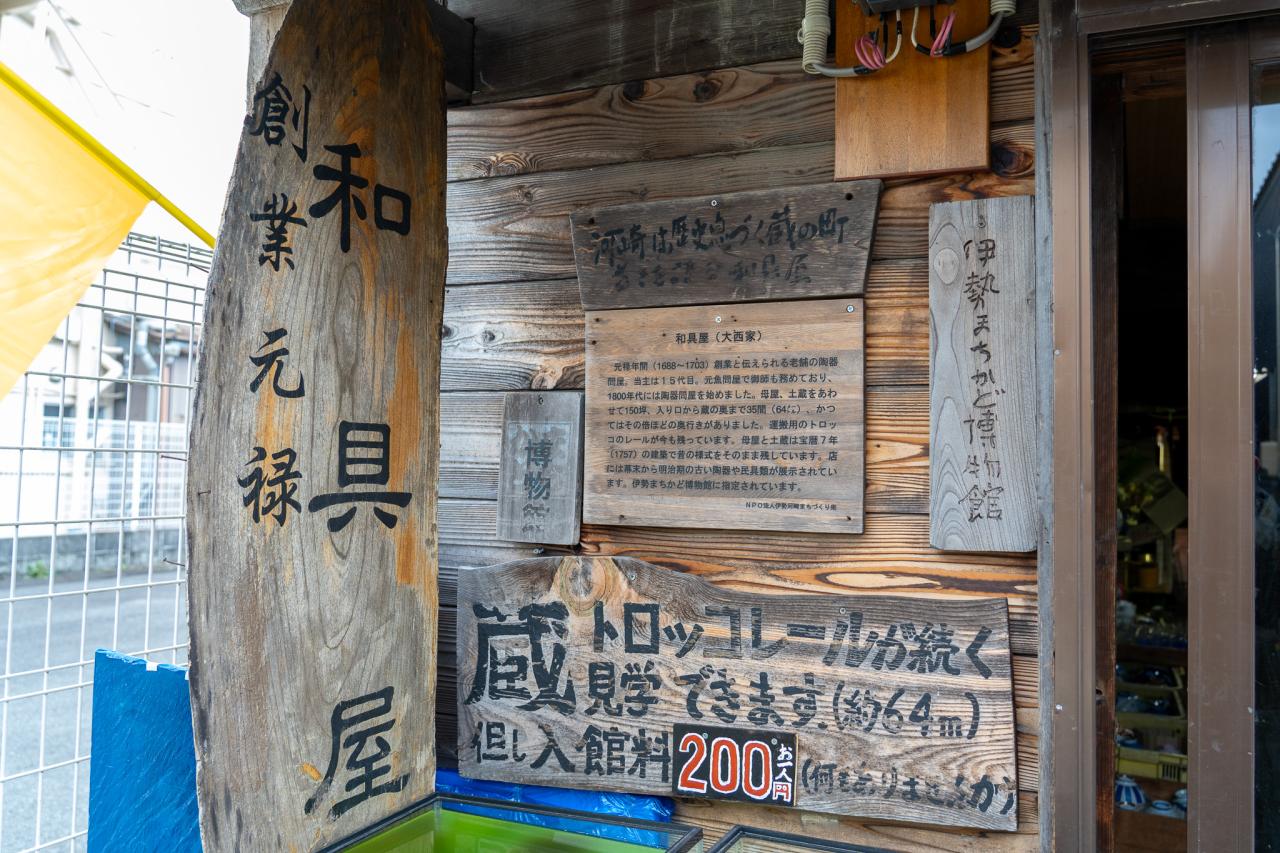 創業元禄
和具屋
河崎は歴史息づく蔵の町
和具屋
和具屋（大西家）
元禄年間（1688～1703）創業と伝えられる老舗の陶器
問屋。当主は１５代目。元魚問屋で御師も務めており、
1800年代には陶器問屋を始めました。母屋、土蔵をあわ
せて150坪、入り口から蔵の奥まで35間（64㍍）、かつ
てはその倍ほどの奥行きがありました。運搬用のトロッ
コのレールが今も残っています。母屋と土蔵は宝暦７年
（1757）の建築で昔の様式をそのまま残しています。店
には幕末から明治期の古い陶器や民具類が展示されてい
ます。伊勢まちかど博物館に指定されています。
ＮＰＯ法人伊勢河崎まちづくり衆
博物館
伊勢まちかど博物館
蔵 トロッコレールが続く
見学できます.(約64m)
但し入館料200円お一人
(何もありませんが)